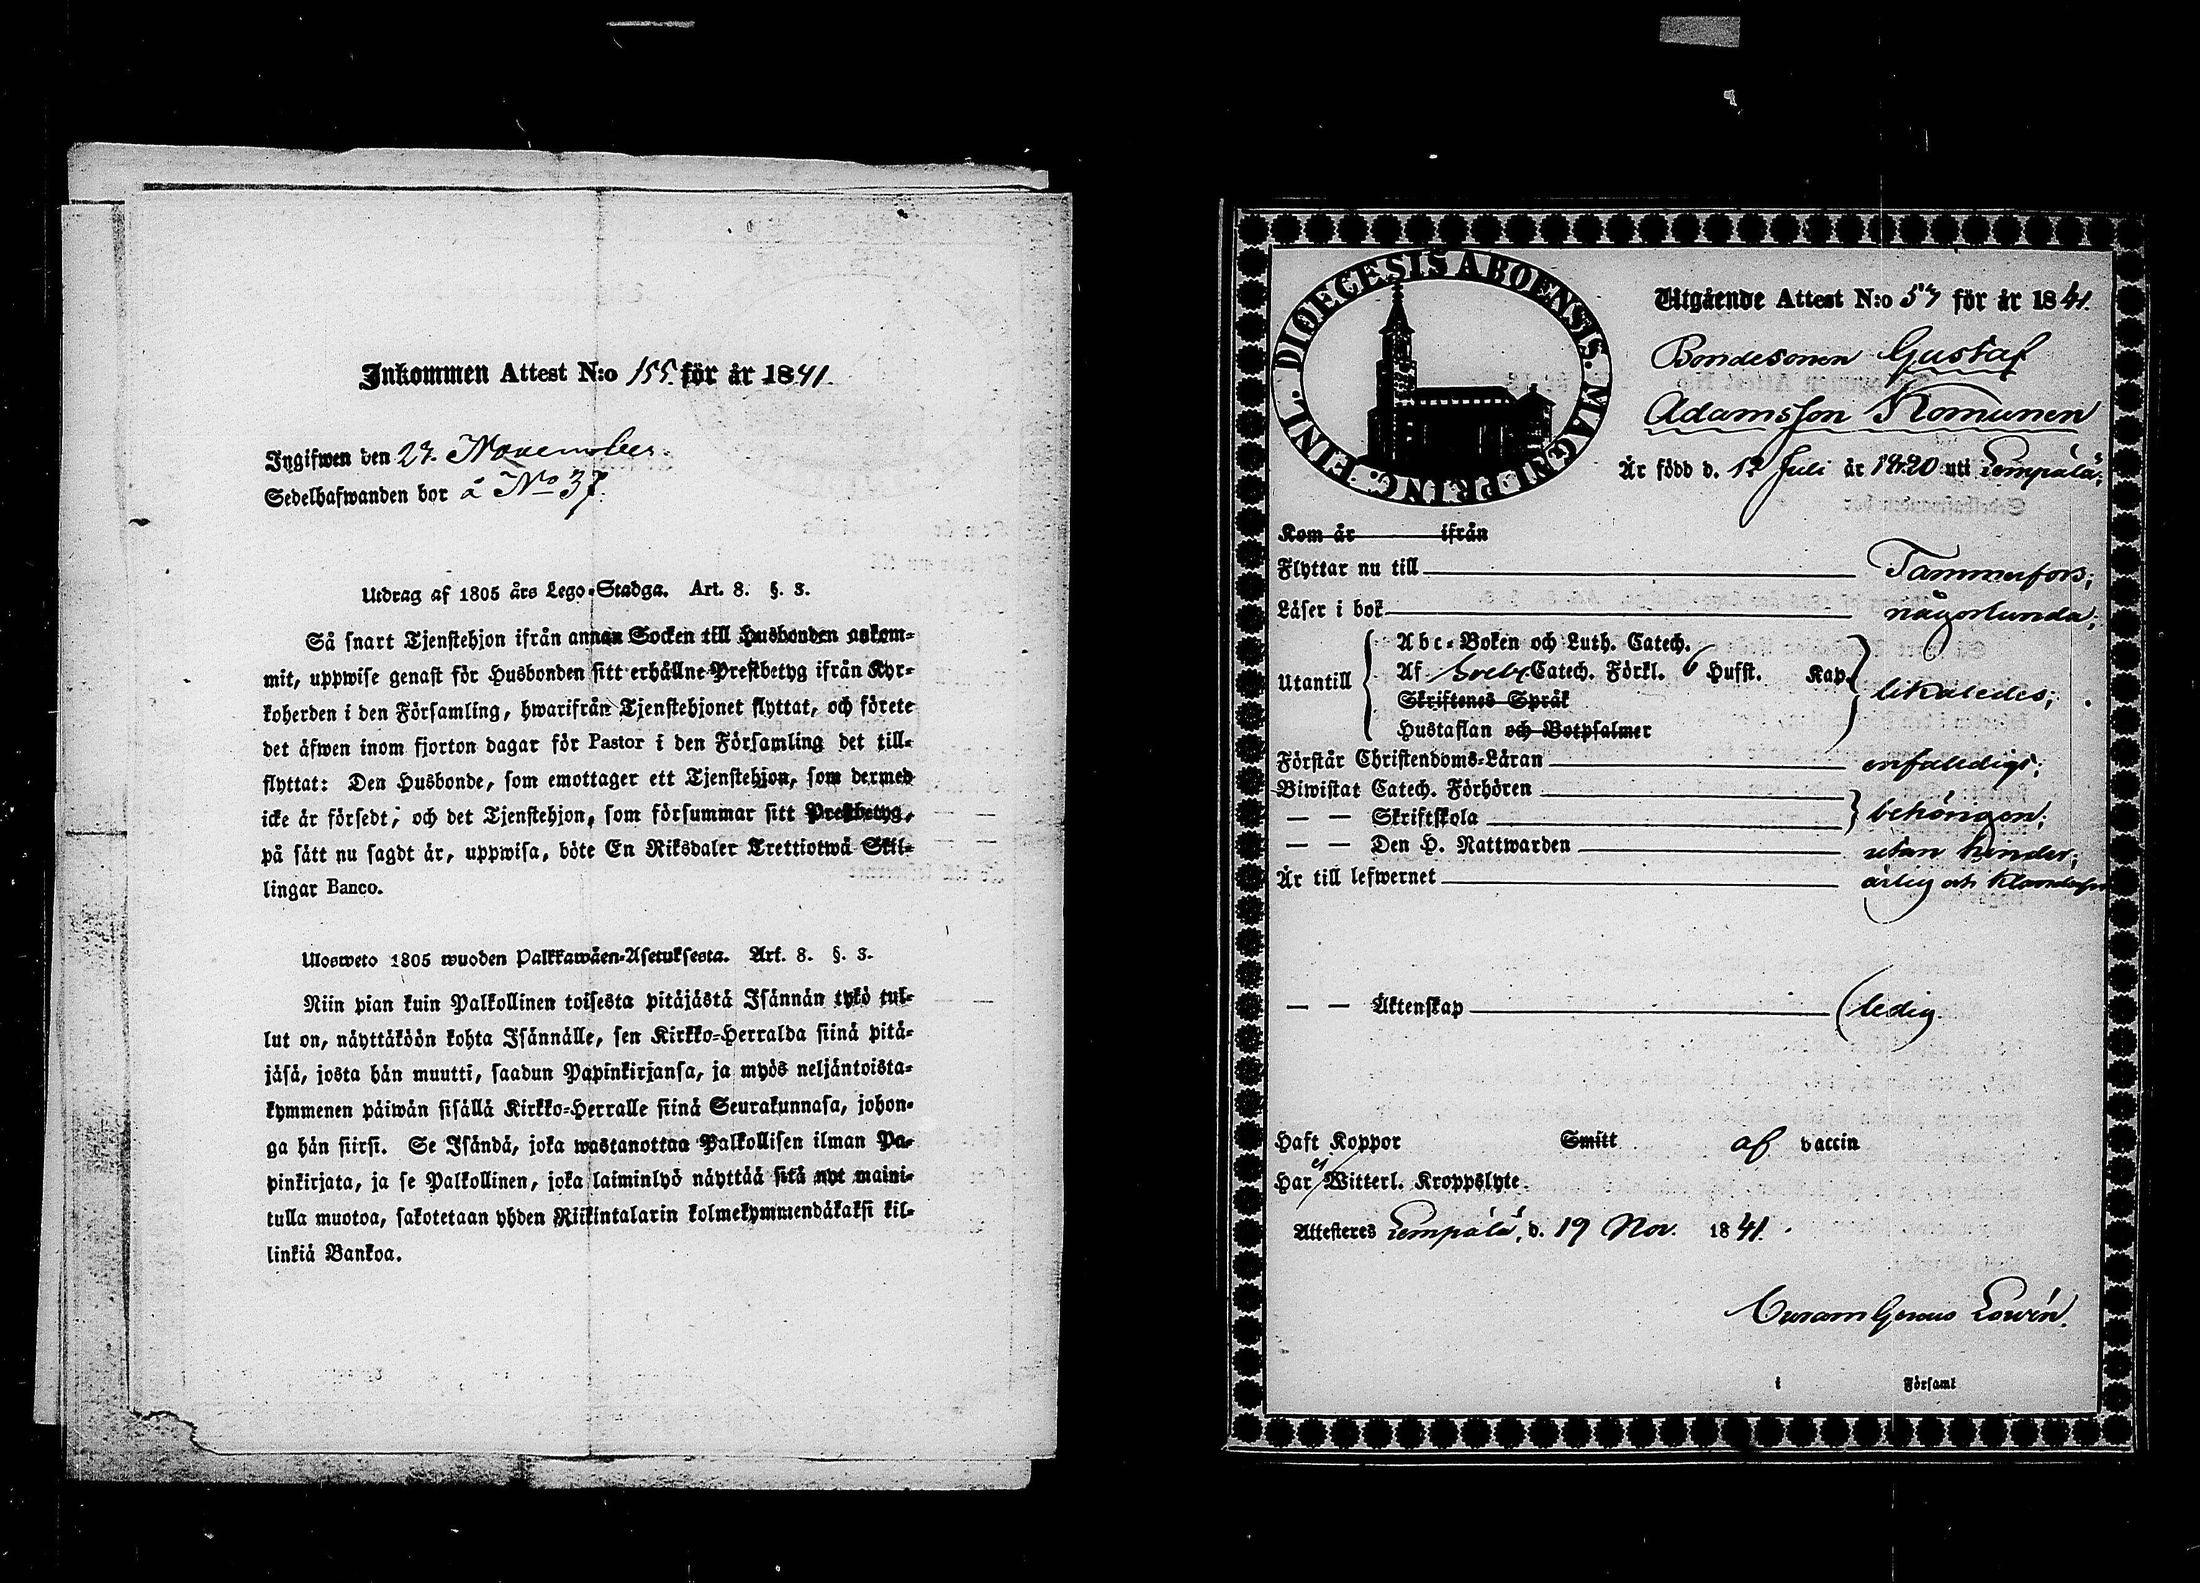 Inkommen Attest N:o 155. för år 1841.
Ingifwen den 27. November.
Sedelhafwanden bor å No 37.
Utdrag af 1805 års Lego-Stadga. Art. 8. §. 3.
Så snart Tjenstehjon ifrån annan Socken till Husbonden ankom-
mit, uppwise genast för Husbonden sitt erhållne Prestbetyg ifrån Kyr-
koherden i den Församling, hwarifrån Tjenstehjonet flyttat, och förete
det äfwen inom fjorton dagar för Pastor i den Församling det till-
flyttat: Den Husbonde, som emottager ett Tjenstehjon, som dermed
icke är försedt, och det Tjenstehjon, som försummar sitt Prestbetyg,
på sätt nu sagdt är, uppwisa, böte En Riksdaler Trettiotwå Skil-
lingar Banco.
Ulosweto 1805 wuoden Palkkawäen-Asetuksesta. Art. 8. §. 3.
Niin pian kuin Palkollinen toisesta pitäjästä Isännän tykö tul-
lut on, näyttäköön kohta Isännälle, sen Kirkko-Herralda siinä pitä-
jäsä, josta hän muutti, saadun Papinkirjansa, ja myös neljäntoista-
kymmenen päiwän sisällä Kirkko-Herralle siinä Seurakunnasa, johon-
ga hän siirsi. Se Isändä, joka wastanottaa Palkollisen ilman Pa-
pinkirjata, ja se Palkollinen, joka laiminlyö näyttää sitä nyt maini-
tulla muotoa, sakotetaan yhden Riikintalarin kolmekymmendäkaksi kil-
linkiä Bankoa.
DIOECESIS ABOENSIS. MAGNI PRINC. FINL.
Utgående Attest N:o 57 för år 1841.
Bondesonen Gustaf
Adamsson Komunen
Är född d. 12 Juli år 1820 uti Lempälä;
Kom år ifrån
Flyttar nu till Tammerfors;
Läser i bok någorlunda;
Utantill
Abc-Boken och Luth. Catech.
Af Sveb. Catech. Förkl. 6 Hufst. Kap.
Skriftenes Språk
Hustaflan och Botpsalmer
likaledes;
Förstår Christendoms-Läran enfaldigt;
Biwistat Catech. Förhören
— — Skriftskola behörigen;
— — Den H. Nattwarden utan hinder;
Är till lefwernet ärlig och klanderfri
— — Äktenskap ledig.
Haft Koppor Smitt af vaccin
Har ej Witterl. Kroppslyte
Attesteres Lempälä, d. 19 Nov. 1841.
Curam Gerens Lowén.
i Församl